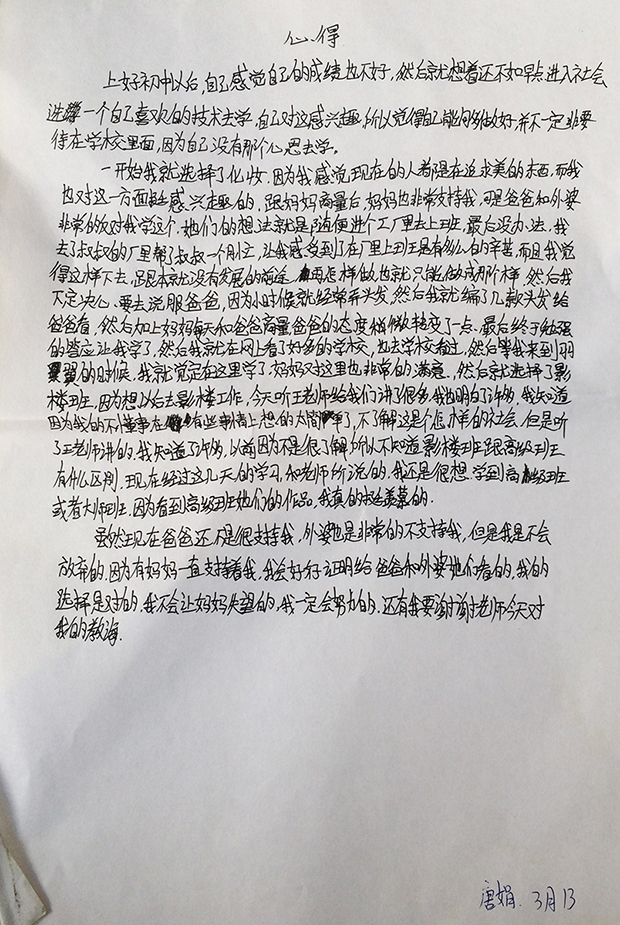 心得
上好初中以后,自己感觉自己的成绩也不好,然后就想着还不如早点进入社会
选择一个自己喜欢的技术去学,自己对这感兴趣,所以觉得自己能够做好,并不一定非要
待在学校里面,因为自己没有那个心思去学。
一开始我就选择了化妆.因为我感觉现在的人都是在追求美的东西.而我
也对这一方面挺感兴趣的.跟妈妈商量后,妈妈也非常支持我,可是爸爸和外婆
非常的反对我学这个.她们的想法就是随便进个工厂里去上班.最后没办法.我
去了叔叔的厂里帮了叔叔一个月忙,让我感受到了在厂里上班是有多么的辛苦.而且我觉
得这样下去,跟本就没有发展的前途 再怎样做也就只能做成那样,然后我
下定决心.要去说服爸爸,因为小时候就经常弄头发,然后我就编了几款头发给
爸爸看.然后加上妈妈每天和爸爸商量爸爸的态度稍微转变了一点.最后终于勉强
的答应让我学了.然后我就在网上看了好多的学校,也去学校看过,然后等我来到羽
翼的时候.我就觉定在这里学了.妈妈对这里也非常的满意,然后就选择了影
楼班,因为想以后去影楼工作,今天听王老师给我们讲了很多,我也明白了许多 我知道
因为我的不懂事在有些事情上想的太简单了,不了解这是个怎样的社会.但是听
了王老师讲的,我知道了许多,以前因为不是很了解所以不知道影楼班跟高级班
有什么区别.现在经过这几天的学习,和老师所说的.我还是很想学到高级班
或者大师班.因为看到高级班她们的作品,我真的挺羡慕的.
虽然现在爸爸还不是很支持我,外婆也是非常的不支持我,但是我是不会
放弃的,因为有妈妈一直支持着我,我会好好证明给爸爸和外婆他们看的,我的
选择是对的,我不会让妈妈失望的,我一定会努力的.还有我要谢谢老师今天对
我的教诲.
唐娟. 3月13